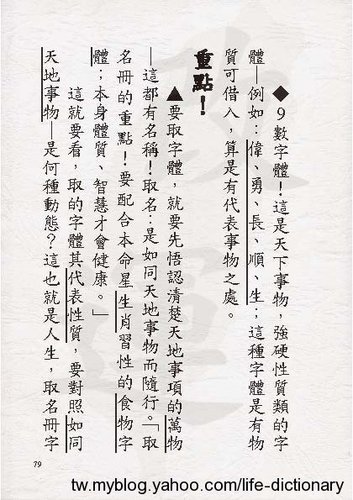 ◆9數字體！這是天下事物，強硬性質類的字
體—例如：偉、勇、長、順、生；這種字體是有物
質可借入，算是有代表事物之處。
重點！
▲要取字體，就要先悟認清楚天地事項的萬物
—這都有名稱！取名：是如同天地事物而隨行。「取
名冊的重點！要配合本命星生肖習性的食物字
體；本身體質、智慧才會健康。」
這就要看，取的字體其代表性質，要對照如同
天地事物—是何種動態？這也就是人生，取名冊字
79
tw.myblog.yahoo.com/life-dictionary